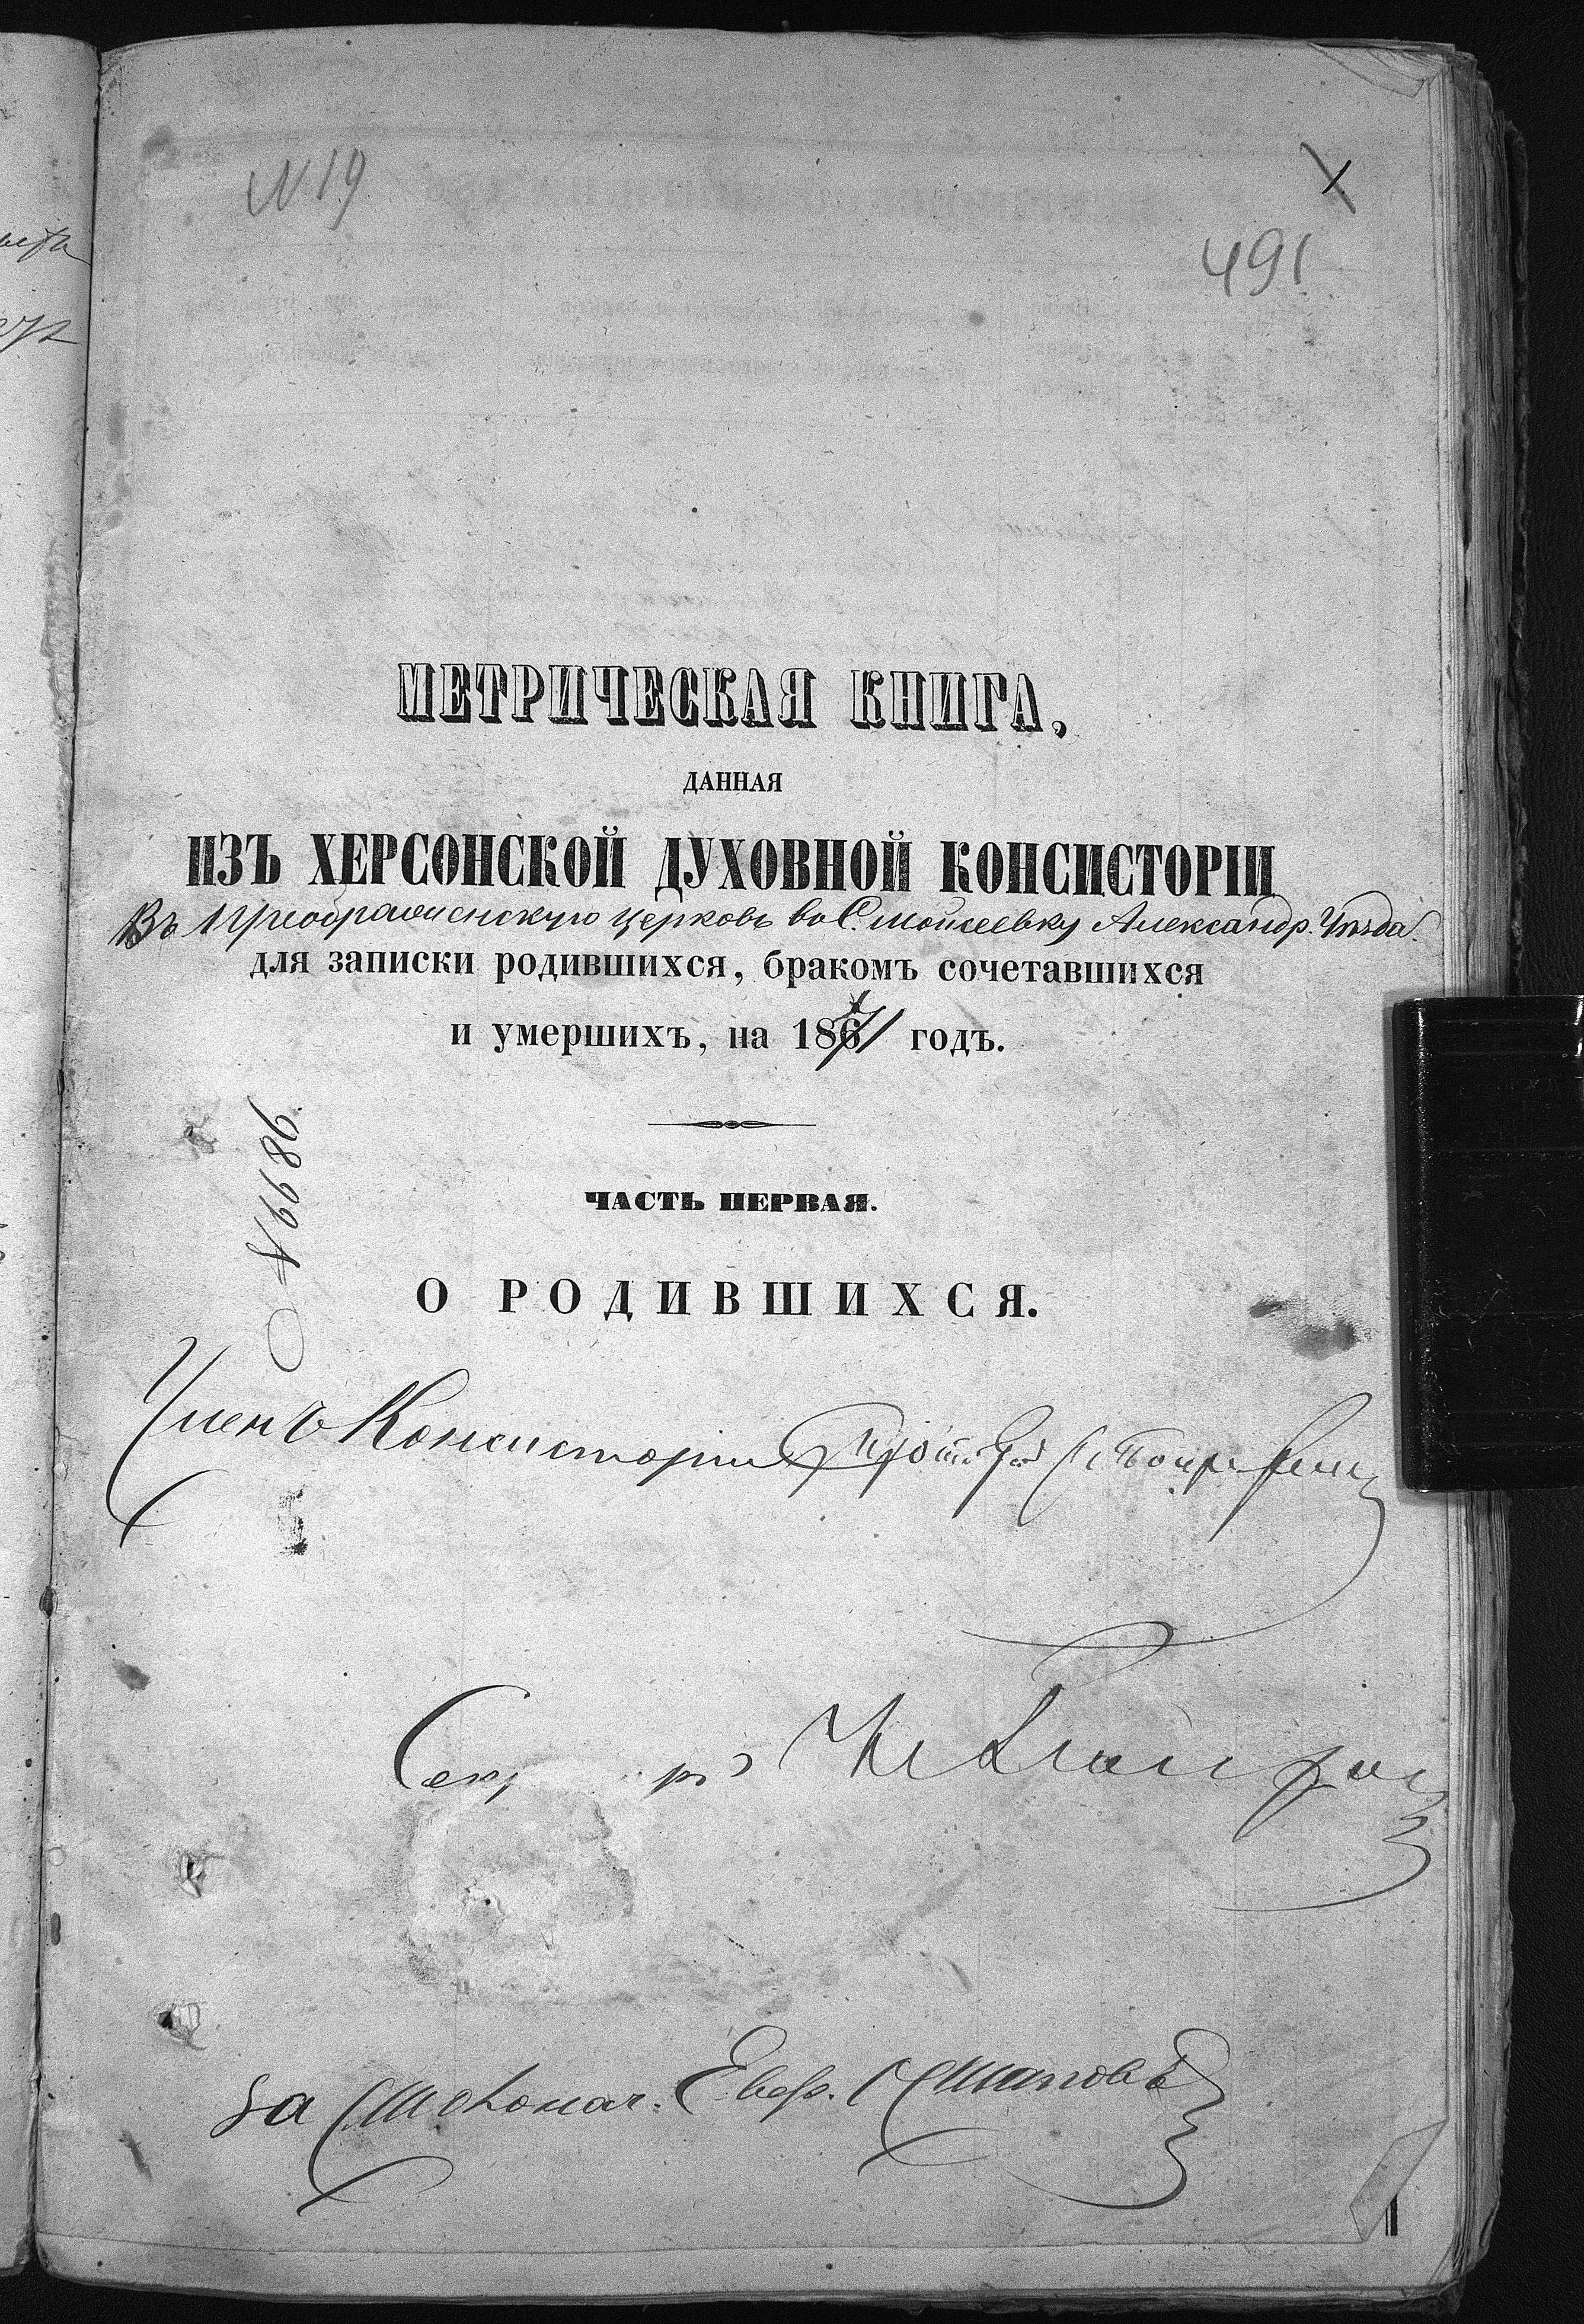 N. 19
1
491
МЕТРИЧЕСКАЯ КНИГА,
ДАННАЯ
ИЗЪ ХЕРСОНСКОЙ ДУХОВНОЙ КОНСИСТОРІИ
Въ Преображенскую церковь во С. Мойсеевку Александр. Уѣзда.
для записки родившихся, бракомъ сочетавшихся
и умершихъ, на 1871 годъ.
ЧАСТЬ ПЕРВАЯ.
О РОДИВШИХСЯ.
Членъ Консисторіи
За Столонач.